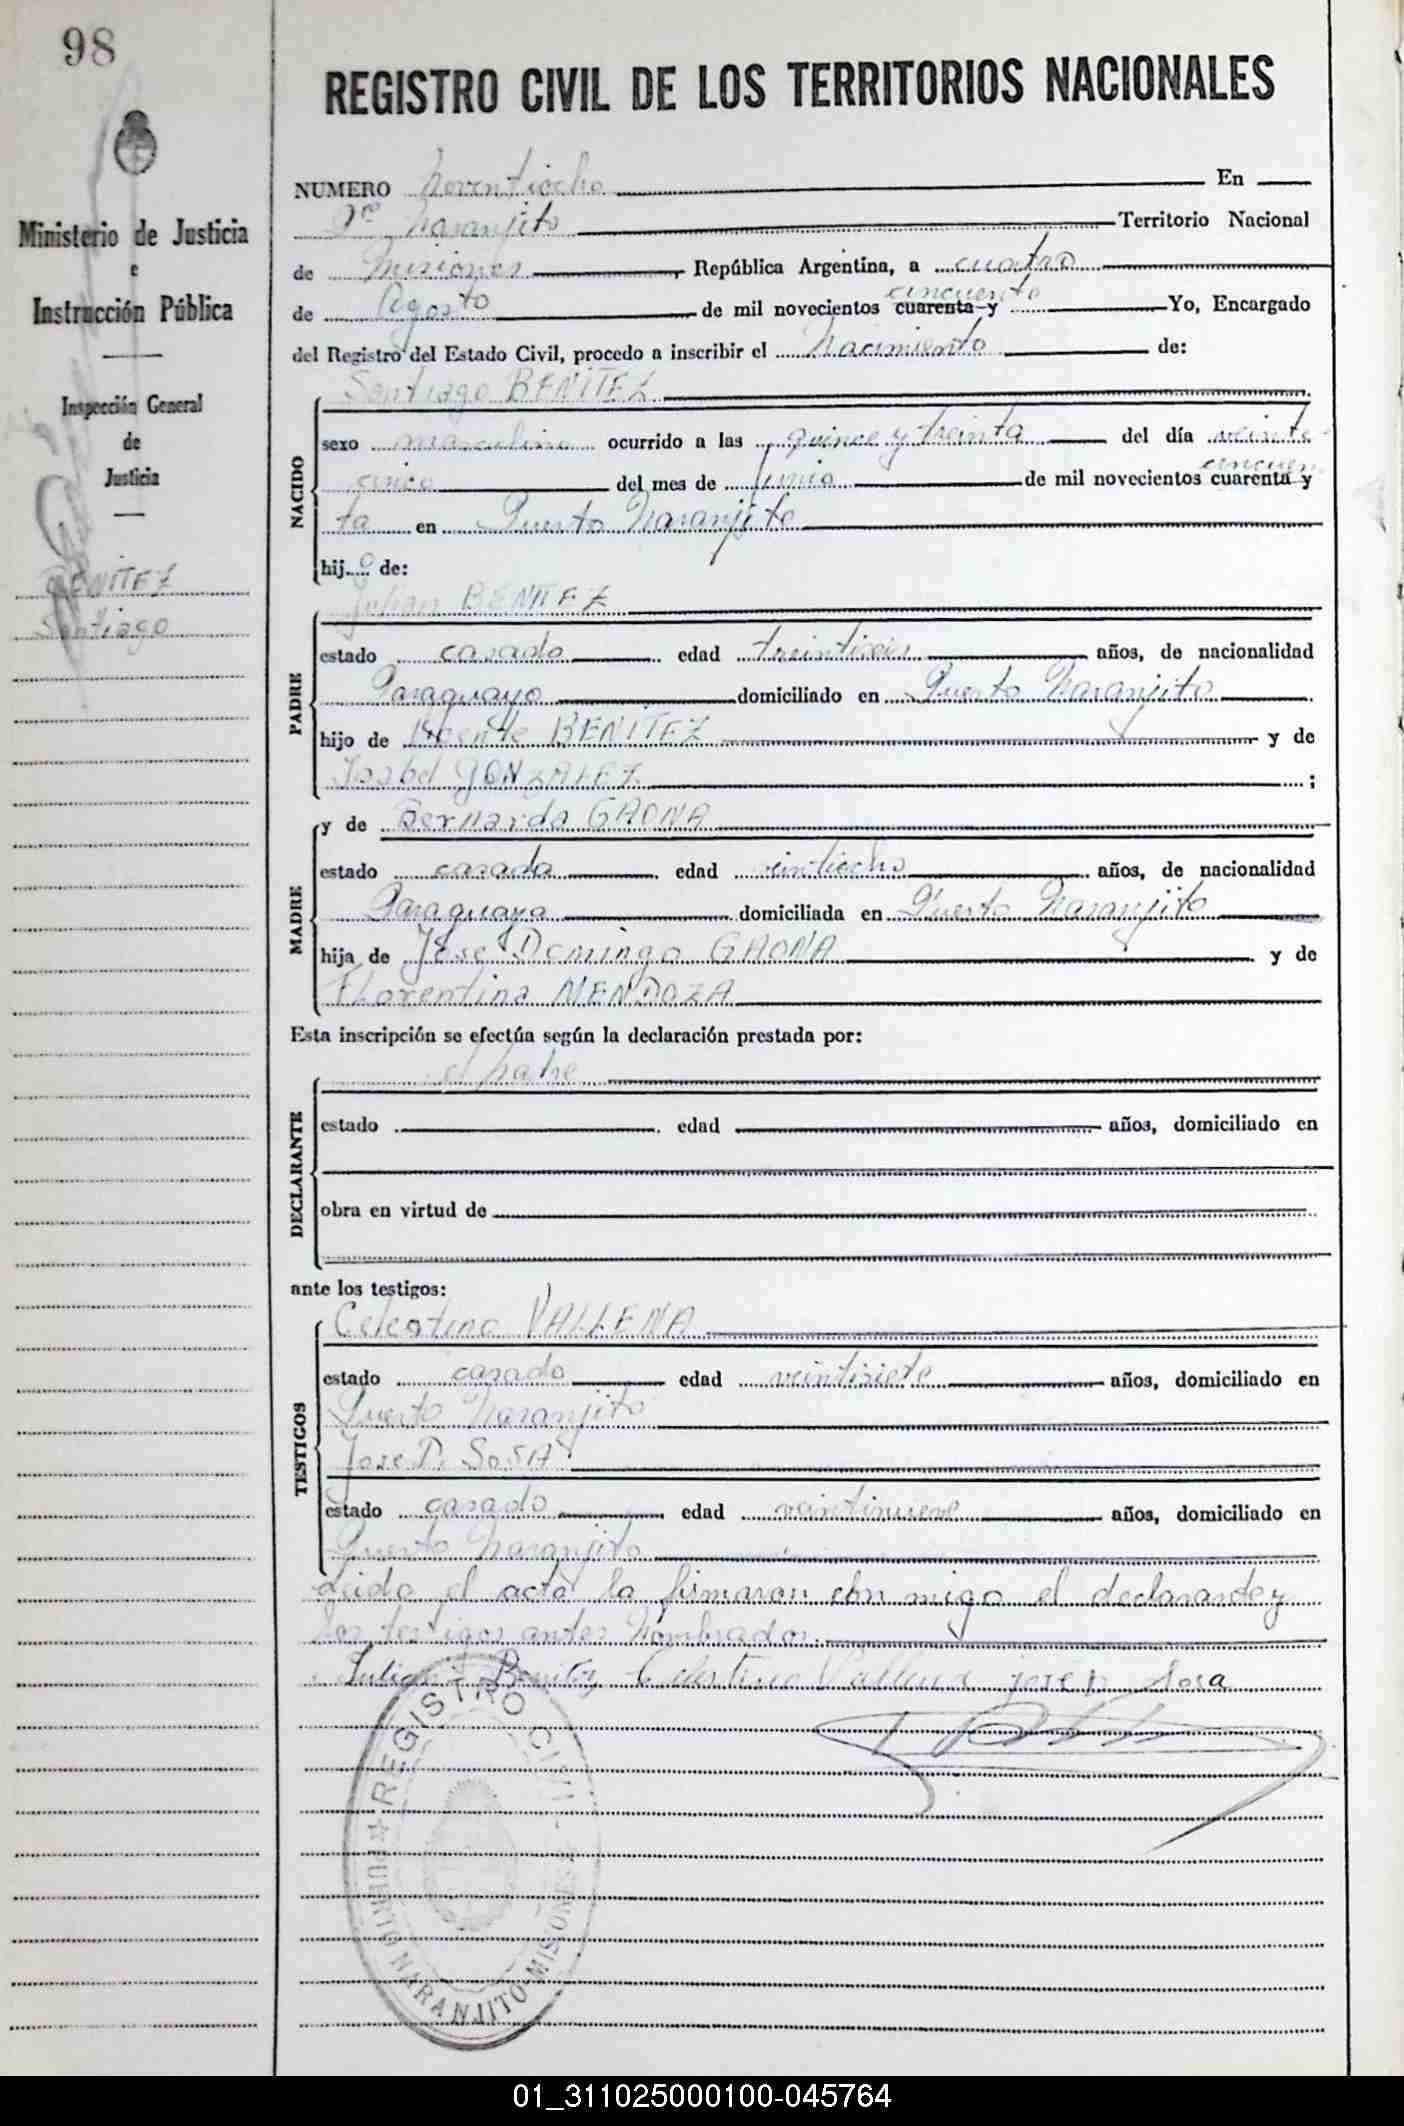 98
Ministerio de Justicia
e
Instrucción Pública
Inspección General
de
Justicia
BENITEZ
Santiago
REGISTRO CIVIL DE LOS TERRITORIOS NACIONALES
NUMERO Noventiocho En
Pto Naranjito Territorio Nacional
de Misiones, República Argentina, a cuatro
de Agosto de mil novecientos cuarenta y cincuenta Yo, Encargado
del Registro del Estado Civil, procedo a inscribir el Nacimiento de:
NACIDO
Santiago BENITEZ
sexo masculino ocurrido a las quince y treinta del día veinte
cinco del mes de Junio de mil novecientos cuarenta y cincuen
ta en Puerto Naranjito
hijo de:
PADRE
Julian BENITEZ
estado casado edad treintiseis años, de nacionalidad
Paraguayo domiciliado en Puerto Naranjito
hijo de Vicente BENITEZ y de
Isabel GONZALEZ ;
MADRE
y de Bernarda GAONA
estado casada edad veintiocho años, de nacionalidad
Paraguaya domiciliada en Puerto Naranjito
hija de Jose Domingo GAONA y de
Florentina MENDOZA
Esta inscripción se efectúa según la declaración prestada por:
DECLARANTE
el padre
estado edad años, domiciliado en
obra en virtud de
ante los testigos:
TESTIGOS
Celestino VALLENA
estado casado edad veintisiete años, domiciliado en
Puerto Naranjito
Jose D. SOSA
estado casado edad veintinueve años, domiciliado en
Puerto Naranjito
Leida el acta la firmaron con migo el declarante y
los testigos antes Nombrados.
Julian Benitez Celestino Vallena jose D Sosa
REGISTRO CIVIL
PUERTO NARANJITO - MISIONES
01_311025000100-045764